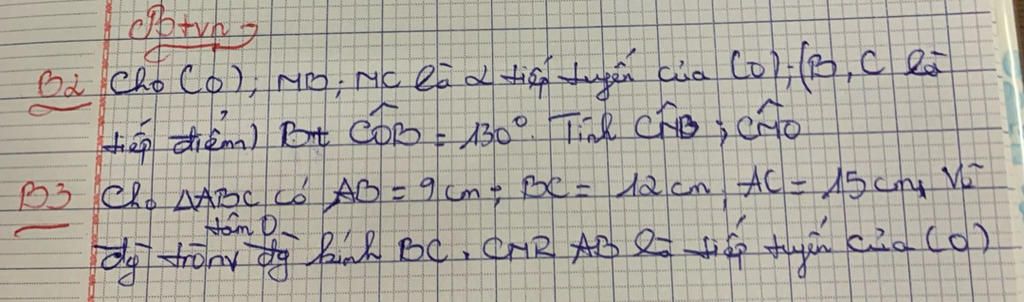 Btvn
B2 Cho (O); MB; MC là 2 tiếp tuyến của (O); (B, C là
tiếp điểm) Bt CÔB = 130°. Tính CM̂B; CM̂O
B3 Cho ΔABC có AB = 9cm; BC = 12cm, AC = 15cm, Vẽ
tâm O
đg tròn đg kính BC. CMR AB là tiếp tuyến của (O)